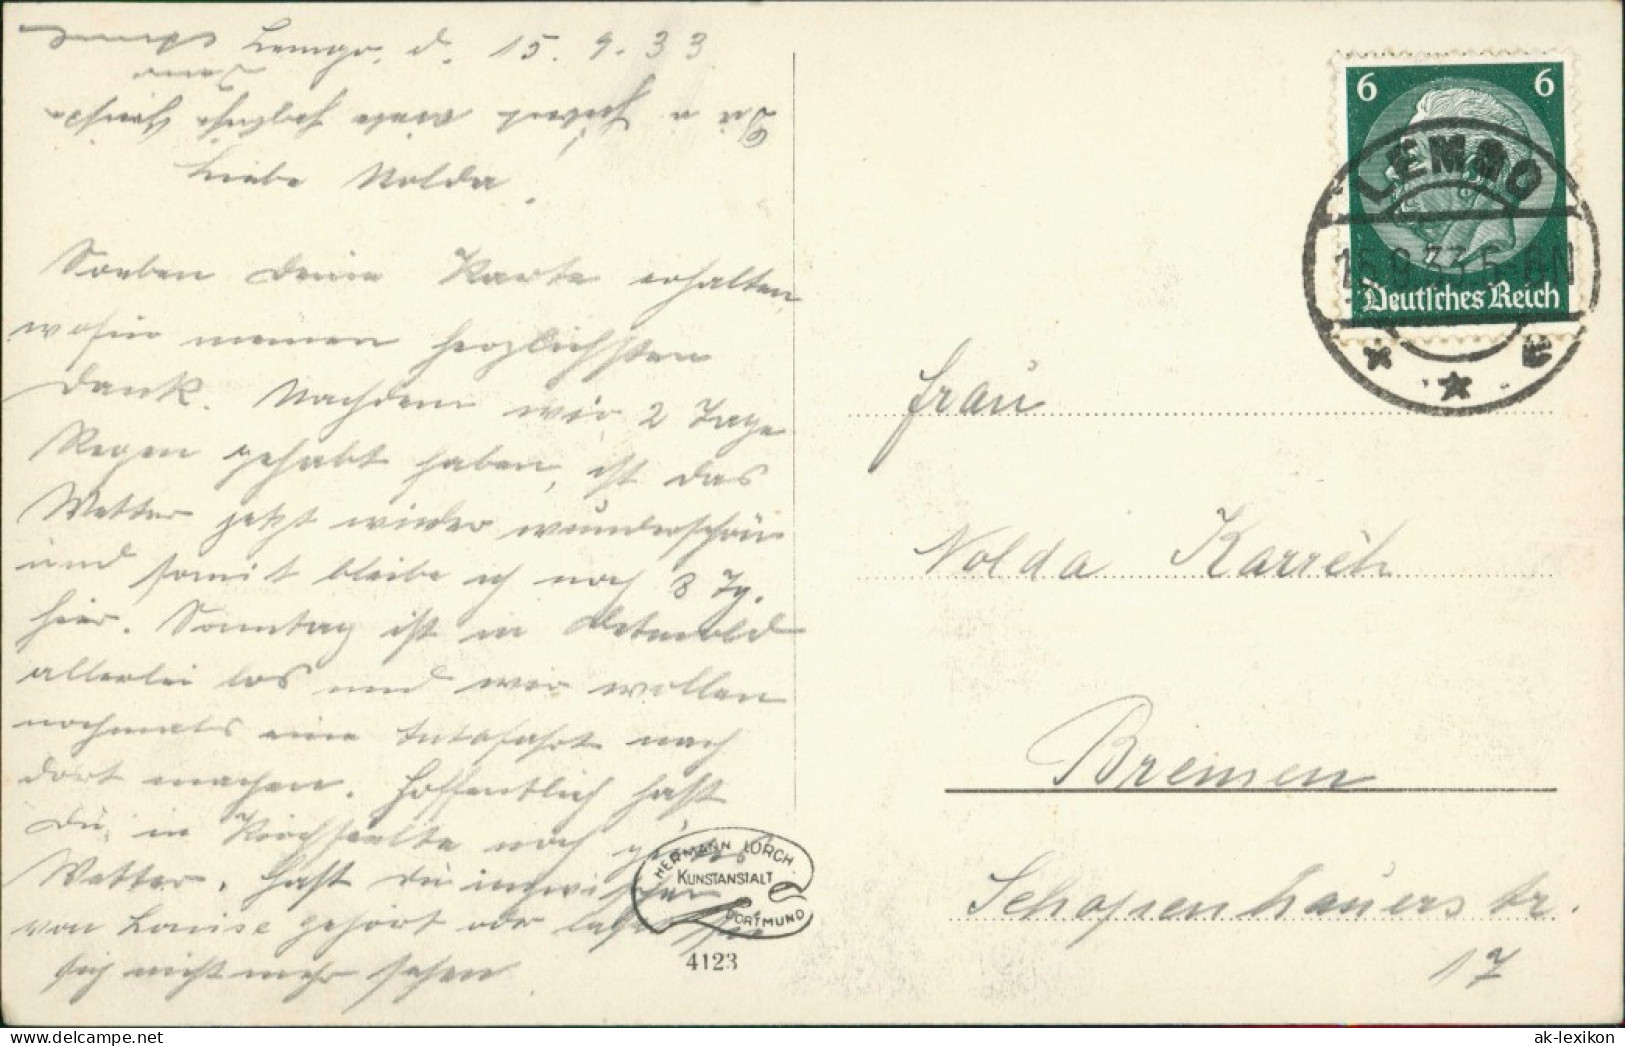 Lemgo, d. 15. 9. 33.
Liebe Nolda!
Soeben Deine Karte erhalten
wofür meinen herzlichsten
Dank. Nachdem wir 2 Tage
Regen gehabt haben, ist das
Wetter jetzt wieder wunderschön
und somit bleibe ich noch 8 Tg.
hier. Sonntag ist in Detmold
allerlei los und wir wollen
nochmals eine Autofahrt nach
dort machen. Hoffentlich hast
Du in noch gutes
Wetter. Hast Du inzwischen
von Louise gehört oder lässt sie
sich nicht mehr sehen
Dir u. viele herzliche Grüsse
HERMANN LORCH
KUNSTANSTALT
DORTMUND
4123
6 6
Deutsches Reich
LEMGO
15.9.33.5-6N
Frau
Nolda Karrëh
Bremen
Schopenhauerstr.
17
delcampe.net
ak-lexikon